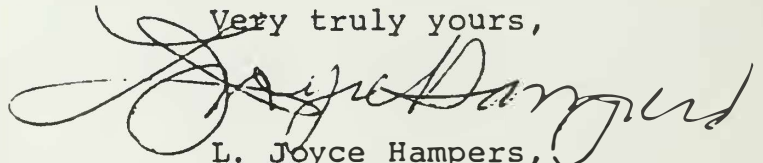 Very truly yours,
L. Joyce Hampers
L. Joyce Hampers,